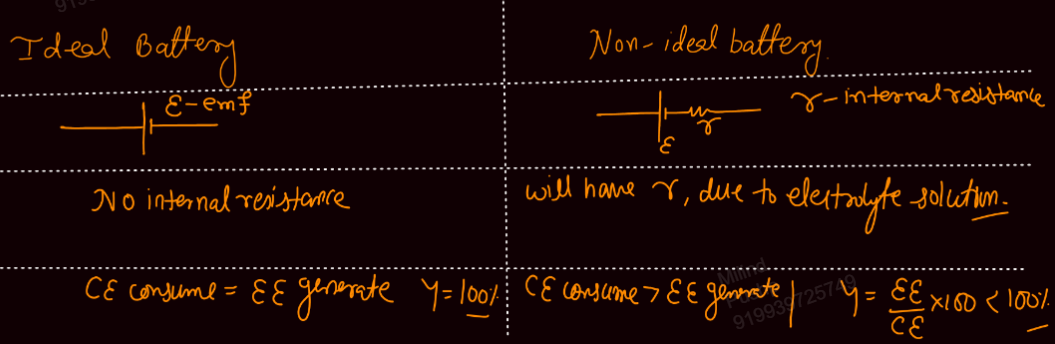 Ideal Battery
Non-ideal battery.
ε-emf
r-internal resistance
r
ε
No internal resistance
will have r, due to electrolyte solution.
CE consume = EE generate η=100%
CE consume > EE generate | η = EE/CE ×100 < 100%
Milind
919939725749